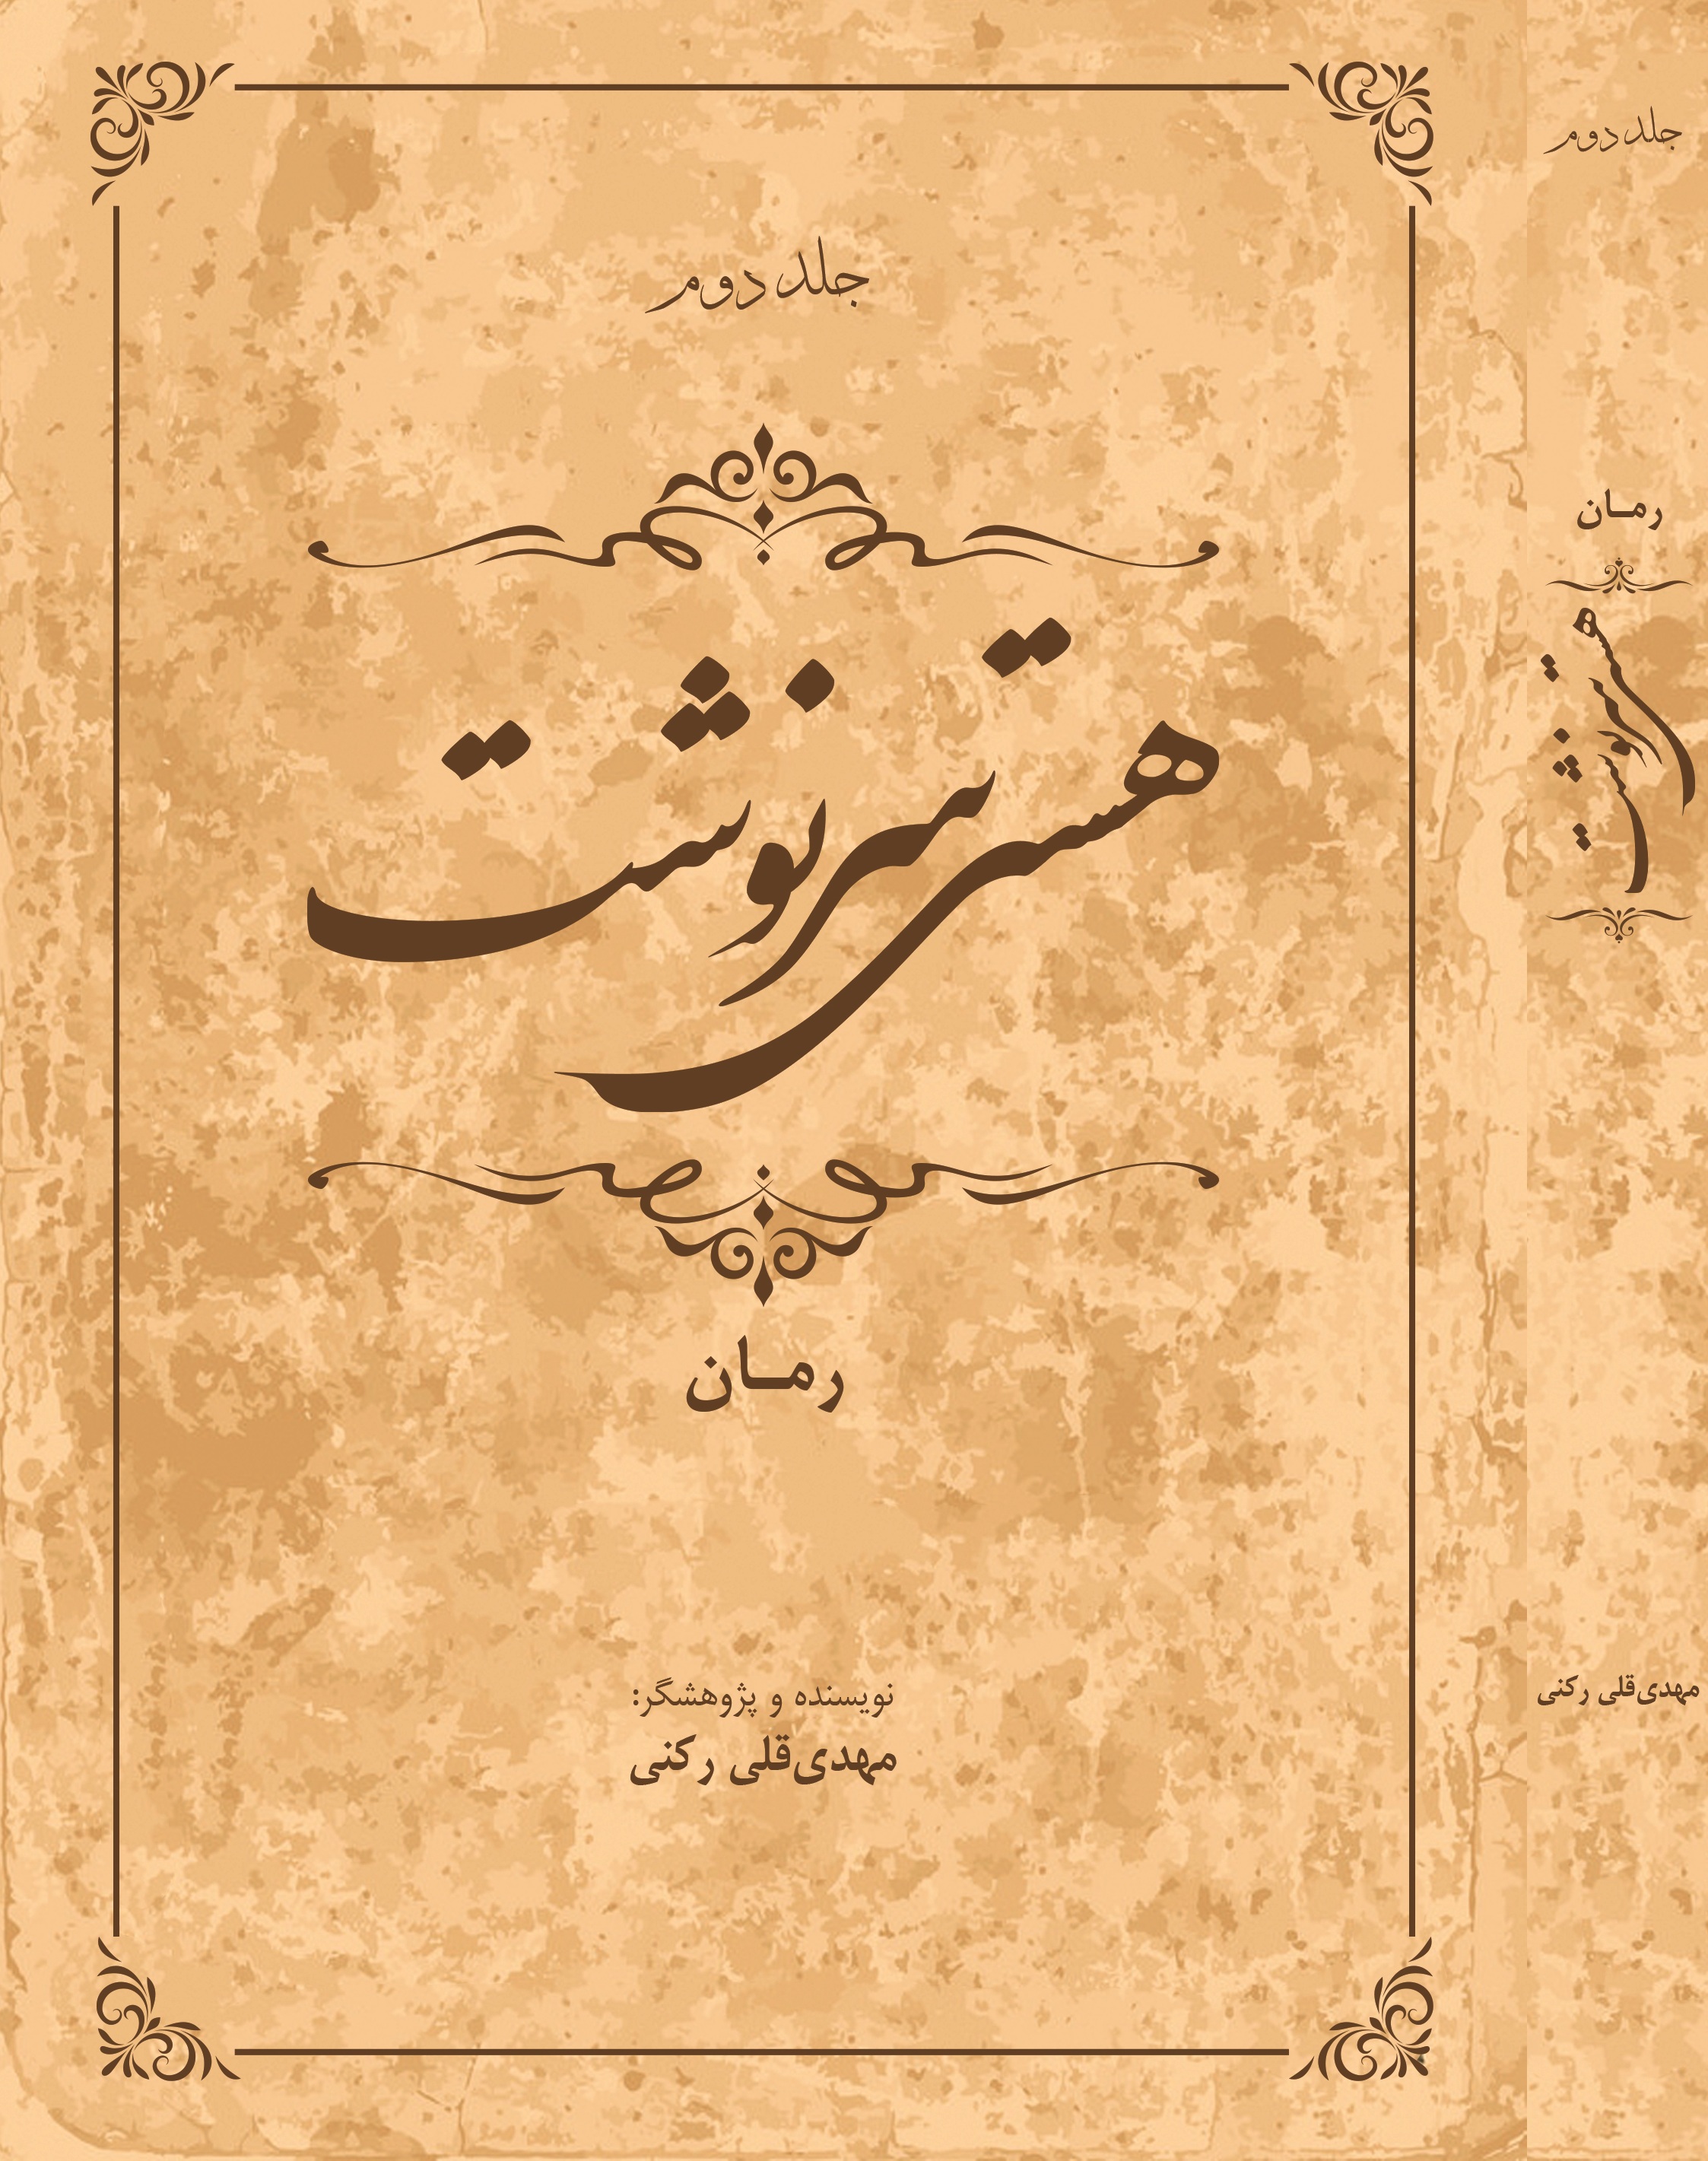 جلد دوم
هستی سرنوشت
رمان
نویسنده و پژوهشگر:
مهدی‌قلی رکنی
جلد دوم
رمان
هستی سرنوشت
مهدی‌قلی رکنی